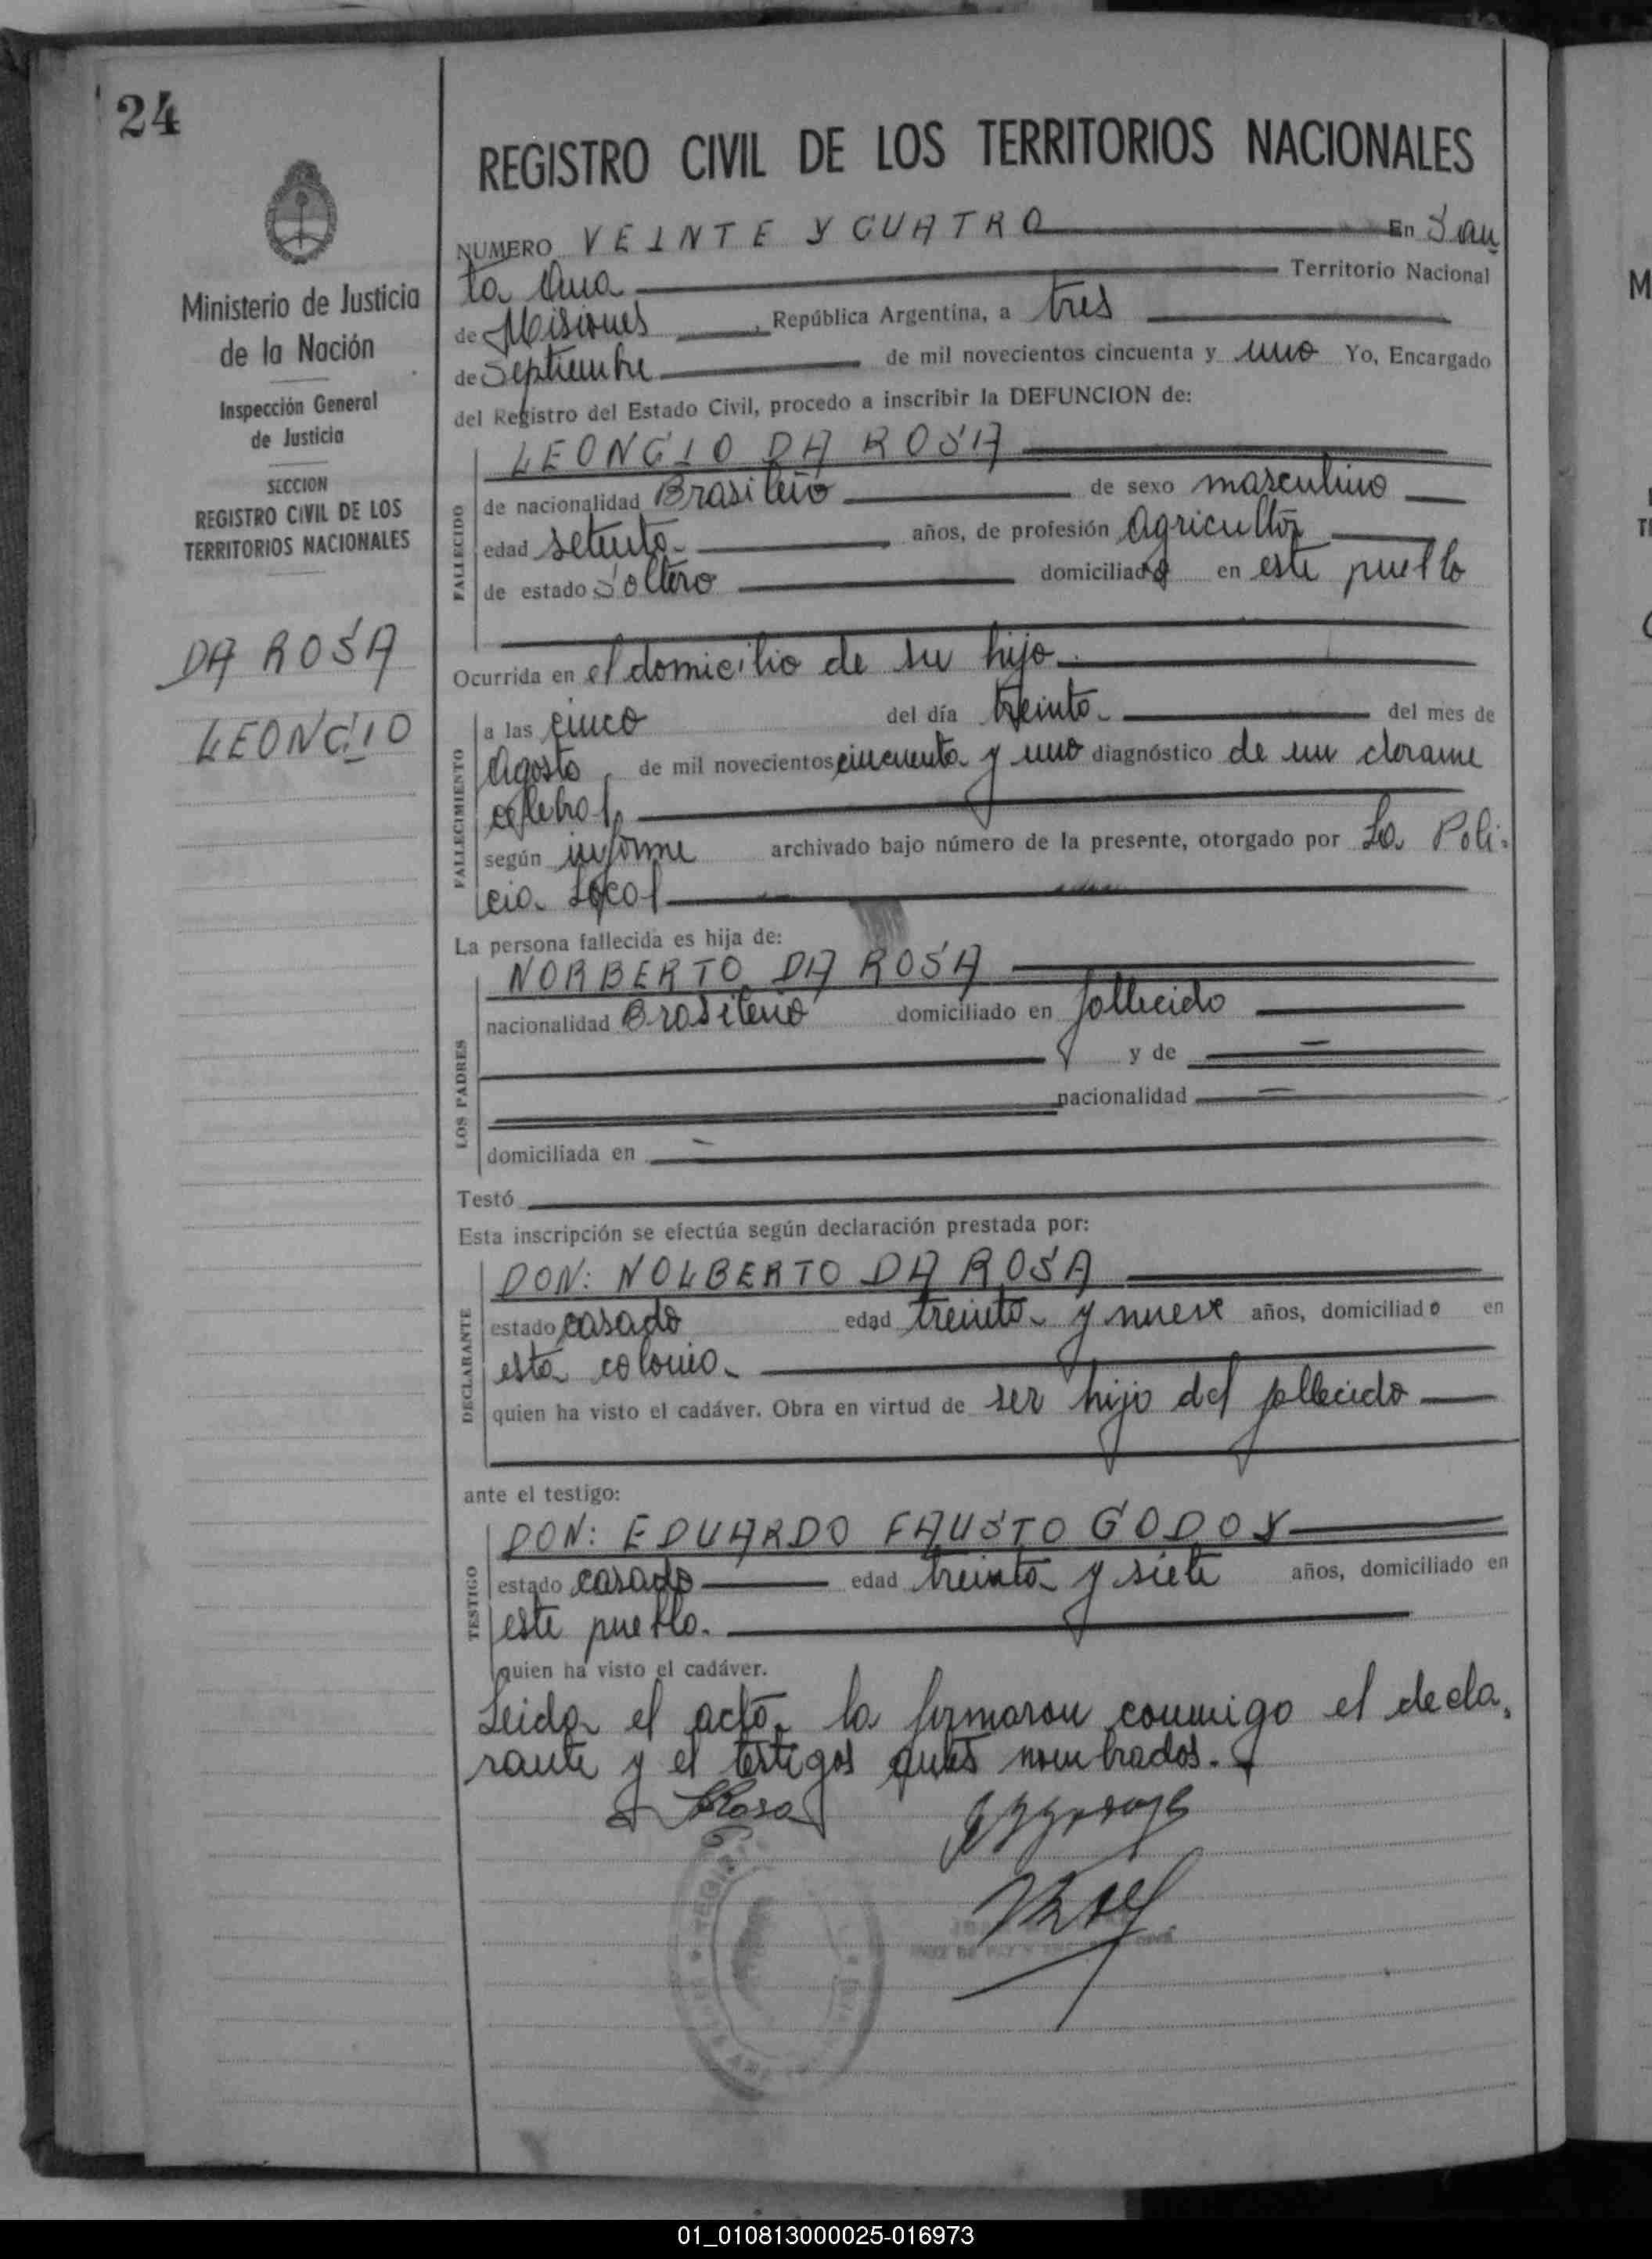 24
REGISTRO CIVIL DE LOS TERRITORIOS NACIONALES
Ministerio de Justicia
de la Nación
Inspección General
de Justicia
SECCION
REGISTRO CIVIL DE LOS
TERRITORIOS NACIONALES
DA ROSA
LEONCIO
NUMERO VEINTE Y CUATRO En San
ta Ana Territorio Nacional
de Misiones, República Argentina, a tres
de Septiembre de mil novecientos cincuenta y uno Yo, Encargado
del Registro del Estado Civil, procedo a inscribir la DEFUNCION de:
FALLECIDO
LEONCIO DA ROSA
de nacionalidad Brasileño de sexo masculino
edad setenta años, de profesión Agricultor
de estado Soltero domiciliado en este pueblo
Ocurrida en el domicilio de su hijo.
FALLECIMIENTO
a las cinco del día treinta del mes de
Agosto, de mil novecientos cincuenta y uno diagnóstico de un
según informe archivado bajo número de la presente, otorgado por La Poli-
cia Local
La persona fallecida es hija de:
LOS PADRES
NORBERTO DA ROSA
nacionalidad Brasileño domiciliado en fallecido
y de
nacionalidad
domiciliada en
Testó
Esta inscripción se efectúa según declaración prestada por:
DECLARANTE
DON: NOLBERTO DA ROSA
estado casado edad treinta y nueve años, domiciliado en
esta colonia
quien ha visto el cadáver. Obra en virtud de ser hijo del fallecido
ante el testigo:
TESTIGO
DON: EDUARDO FAUSTO GODOY
estado casado edad treinta y siete años, domiciliado en
este pueblo.
quien ha visto el cadáver.
Leida el acta la firmaron conmigo el decla,
rante y el testigos antes nombrados.
01_010813000025-016973